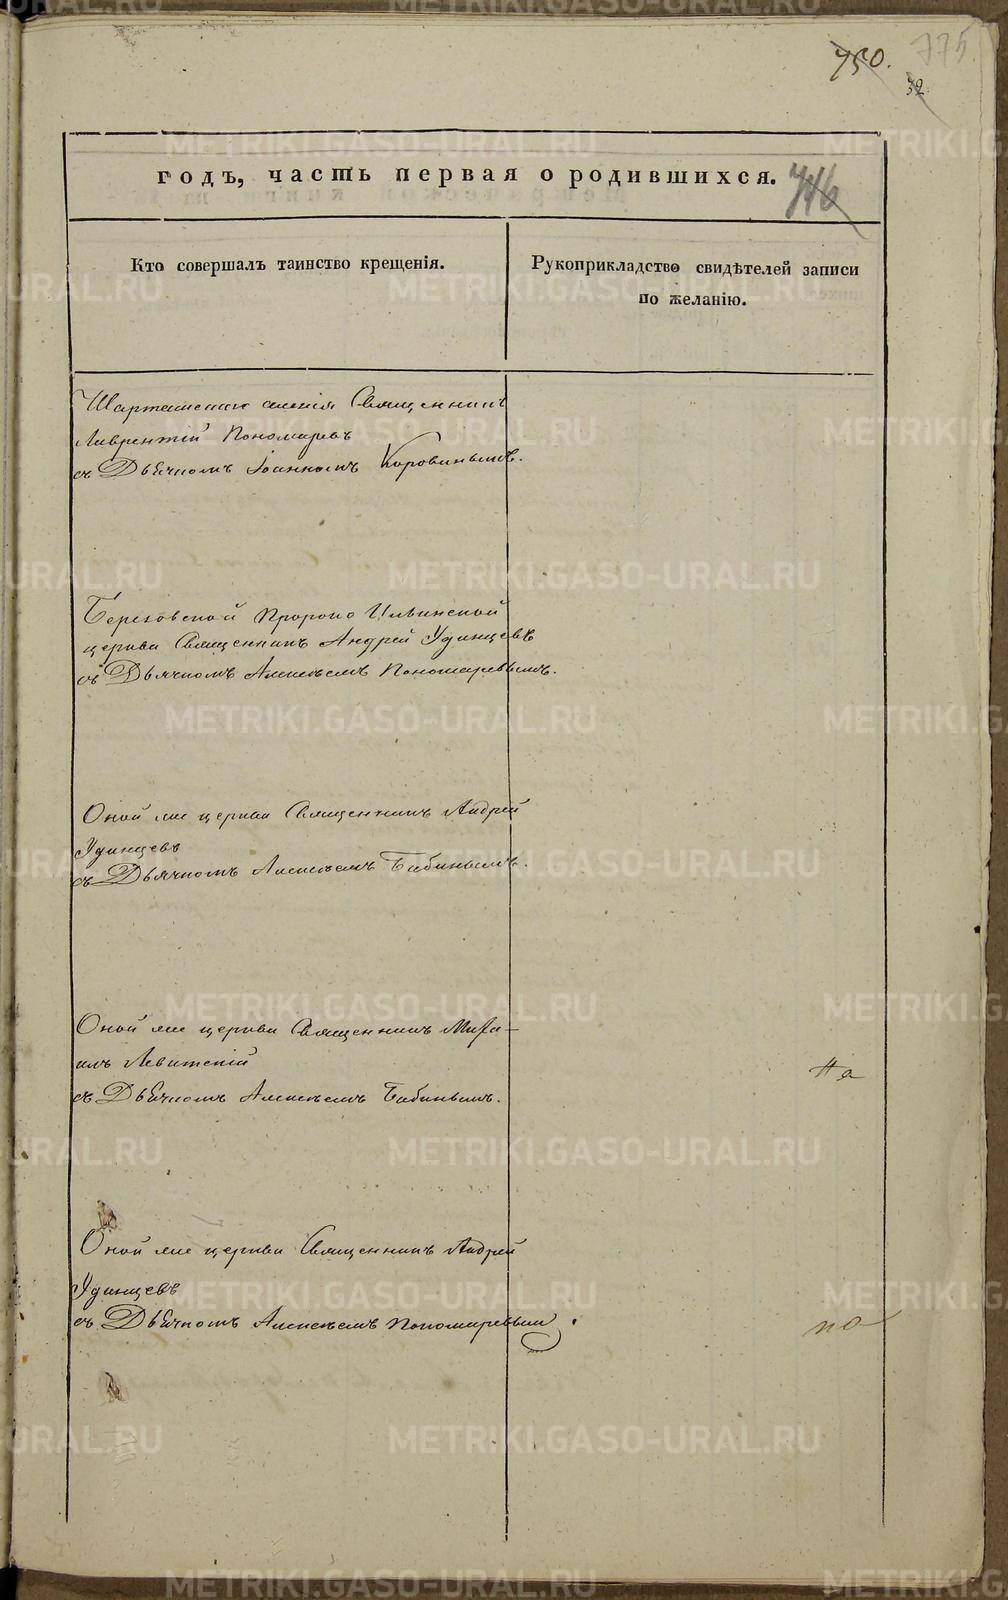 750.
775
32.
годъ, часть первая о родившихся.
746
Кто совершалъ таинство крещенія.
Рукоприкладство свидѣтелей записи
по желанію.
Шарташскаго селенія Священникъ
Лаврентій Пономаревъ
съ Дьячкомъ Іоанномъ Коровинымъ.
Березовской Пророко Ильинской
церкви Священникъ Андрей Удинцевъ
съ Дьячкомъ Алексѣемъ Пономаревымъ.
Оной же церкви Священникъ Андрей
Удинцевъ
съ Дьячкомъ Алексѣемъ Бабинымъ.
Оной же церкви Священникъ Миха-
илъ Левитскій
съ Дьячкомъ Алексѣемъ Бабинымъ.
На
Оной же церкви Священникъ Андрей
Удинцевъ
съ Дьячкомъ Алексѣемъ Пономаревым.
по
METRIKI.GASO-URAL.RU